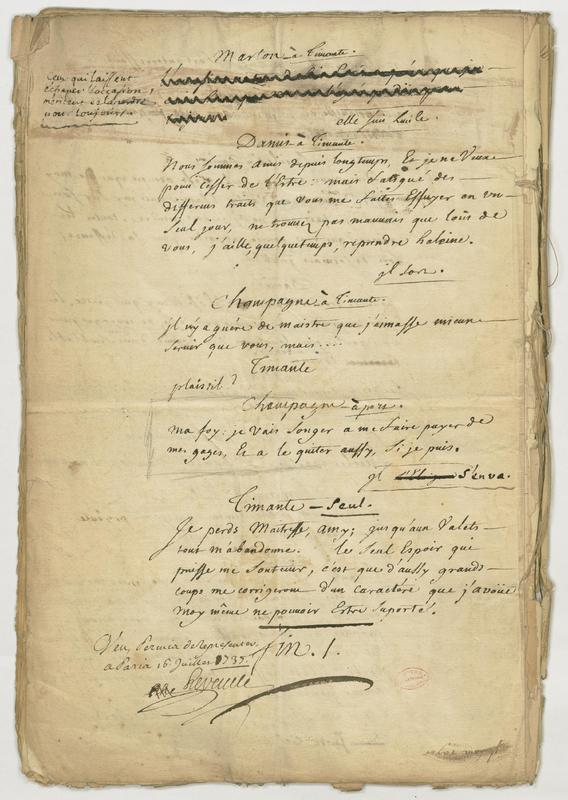 Marton à Timante.
Ceux qui laissent
échaper l'occasion,
méritent
elle suit Lucile.
Damis à Timante.
Nous sommes amis depuis longtemps, Et je ne Veux
pour Cesser de L'Estre: mais fatigué des
differens traits que Vous me faites Essuyer en un
Seul jour, ne trouvez pas mauvais que loin de
vous, j'aille, quelque temps, reprendre haleine.
jl sort.
Champagne à Timante.
jl n'y a guère de maistre que j'aimasse mieux
Servir que vous, mais....
Timante
plaist il?
Champagne à part.
ma foy: je Vais Songer a me faire payer de
mes gages, Et a le quiter aussy, Si je puis.
jl S'en va.
Timante - Seul.
Je perds Maitresse, amy; jusqu'aux Valets
tout m'abandonne. le Seul Espoir qui
puisse me Soutenir, c'est que d'aussy grands
coups me corrigeront d'un caractère que j'avoüe
moy même ne pouvoir Estre Suporté.
fin. /.
Veu, Permis de representer
a Paris 16 Juillet 1737.